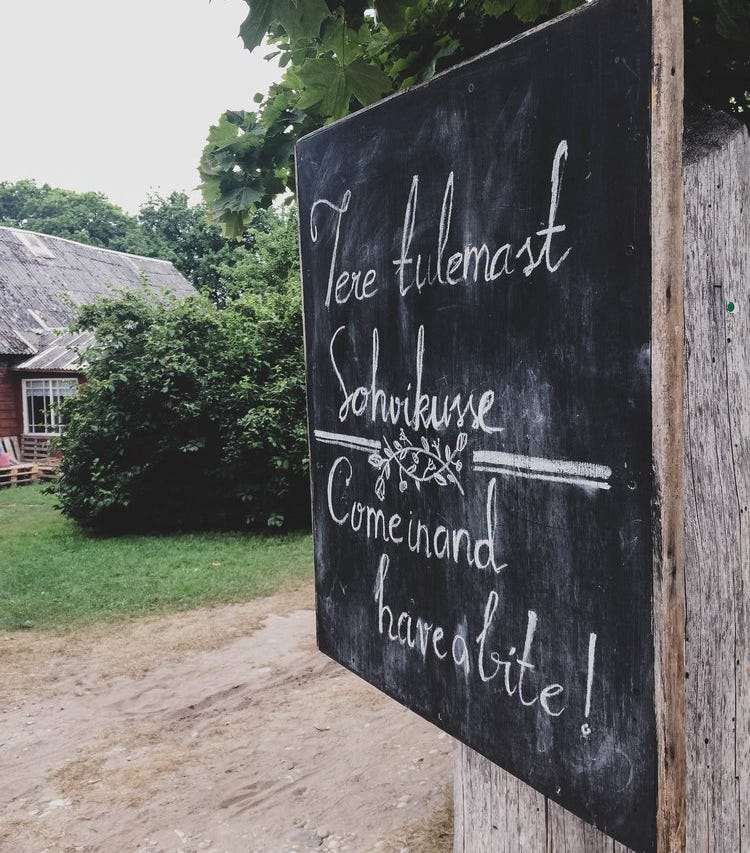 Tere tulemast
Sohvikusse
Come in and
have a bite!